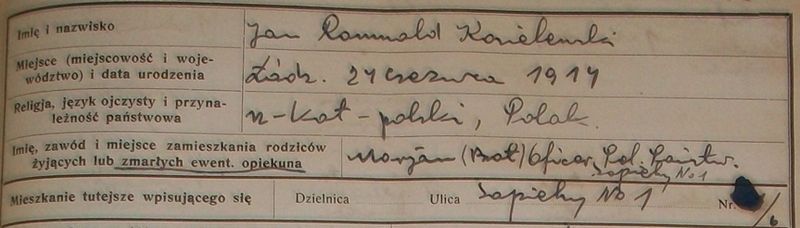 Imię i nazwisko Jan Romuald Kozielewski
Miejsce (miejscowość i woje-
wództwo) i data urodzenia Łódź. 24 czerwca 1914
Religja, język ojczysty i przyna-
leżność państwowa rz-kat-polski, Polak.
Imię, zawód i miejsce zamieszkania rodziców
żyjących lub zmarłych ewent. opiekuna Marjan (Brat) Oficer, Pol. Państw.
Sapiehy No 1
Mieszkanie tutejsze wpisującego się Dzielnica Ulica Sapiehy No 1 Nr. /6